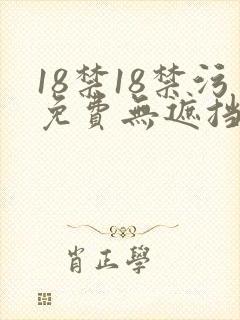 18禁18禁污
免費無遮挡
肖正學